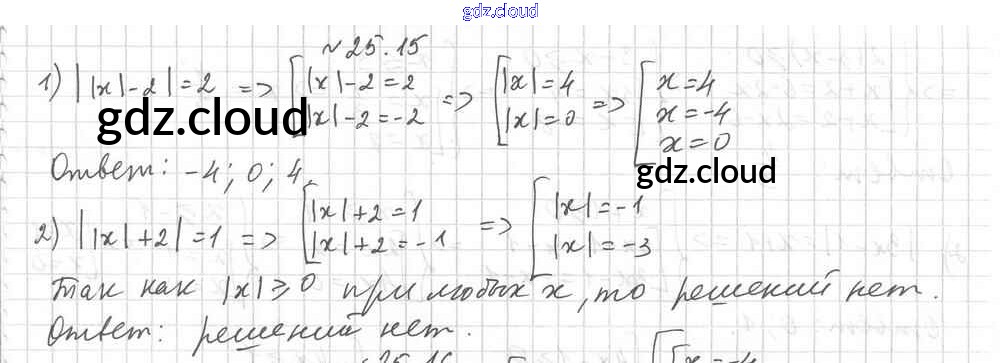 gdz.cloud
№ 25.15
1) ||x|-2|=2 => [|x|-2=2 => [|x|=4 => [x=4
|x|-2=-2 |x|=0 x=-4
x=0
gdz.cloud
gdz.cloud
Ответ: -4; 0; 4.
2) ||x|+2|=1 => [|x|+2=1 => [|x|=-1
|x|+2=-1 |x|=-3
Так как |x|⩾0 при любых x, то решений нет.
Ответ: решений нет.
25.16 [[x=-4